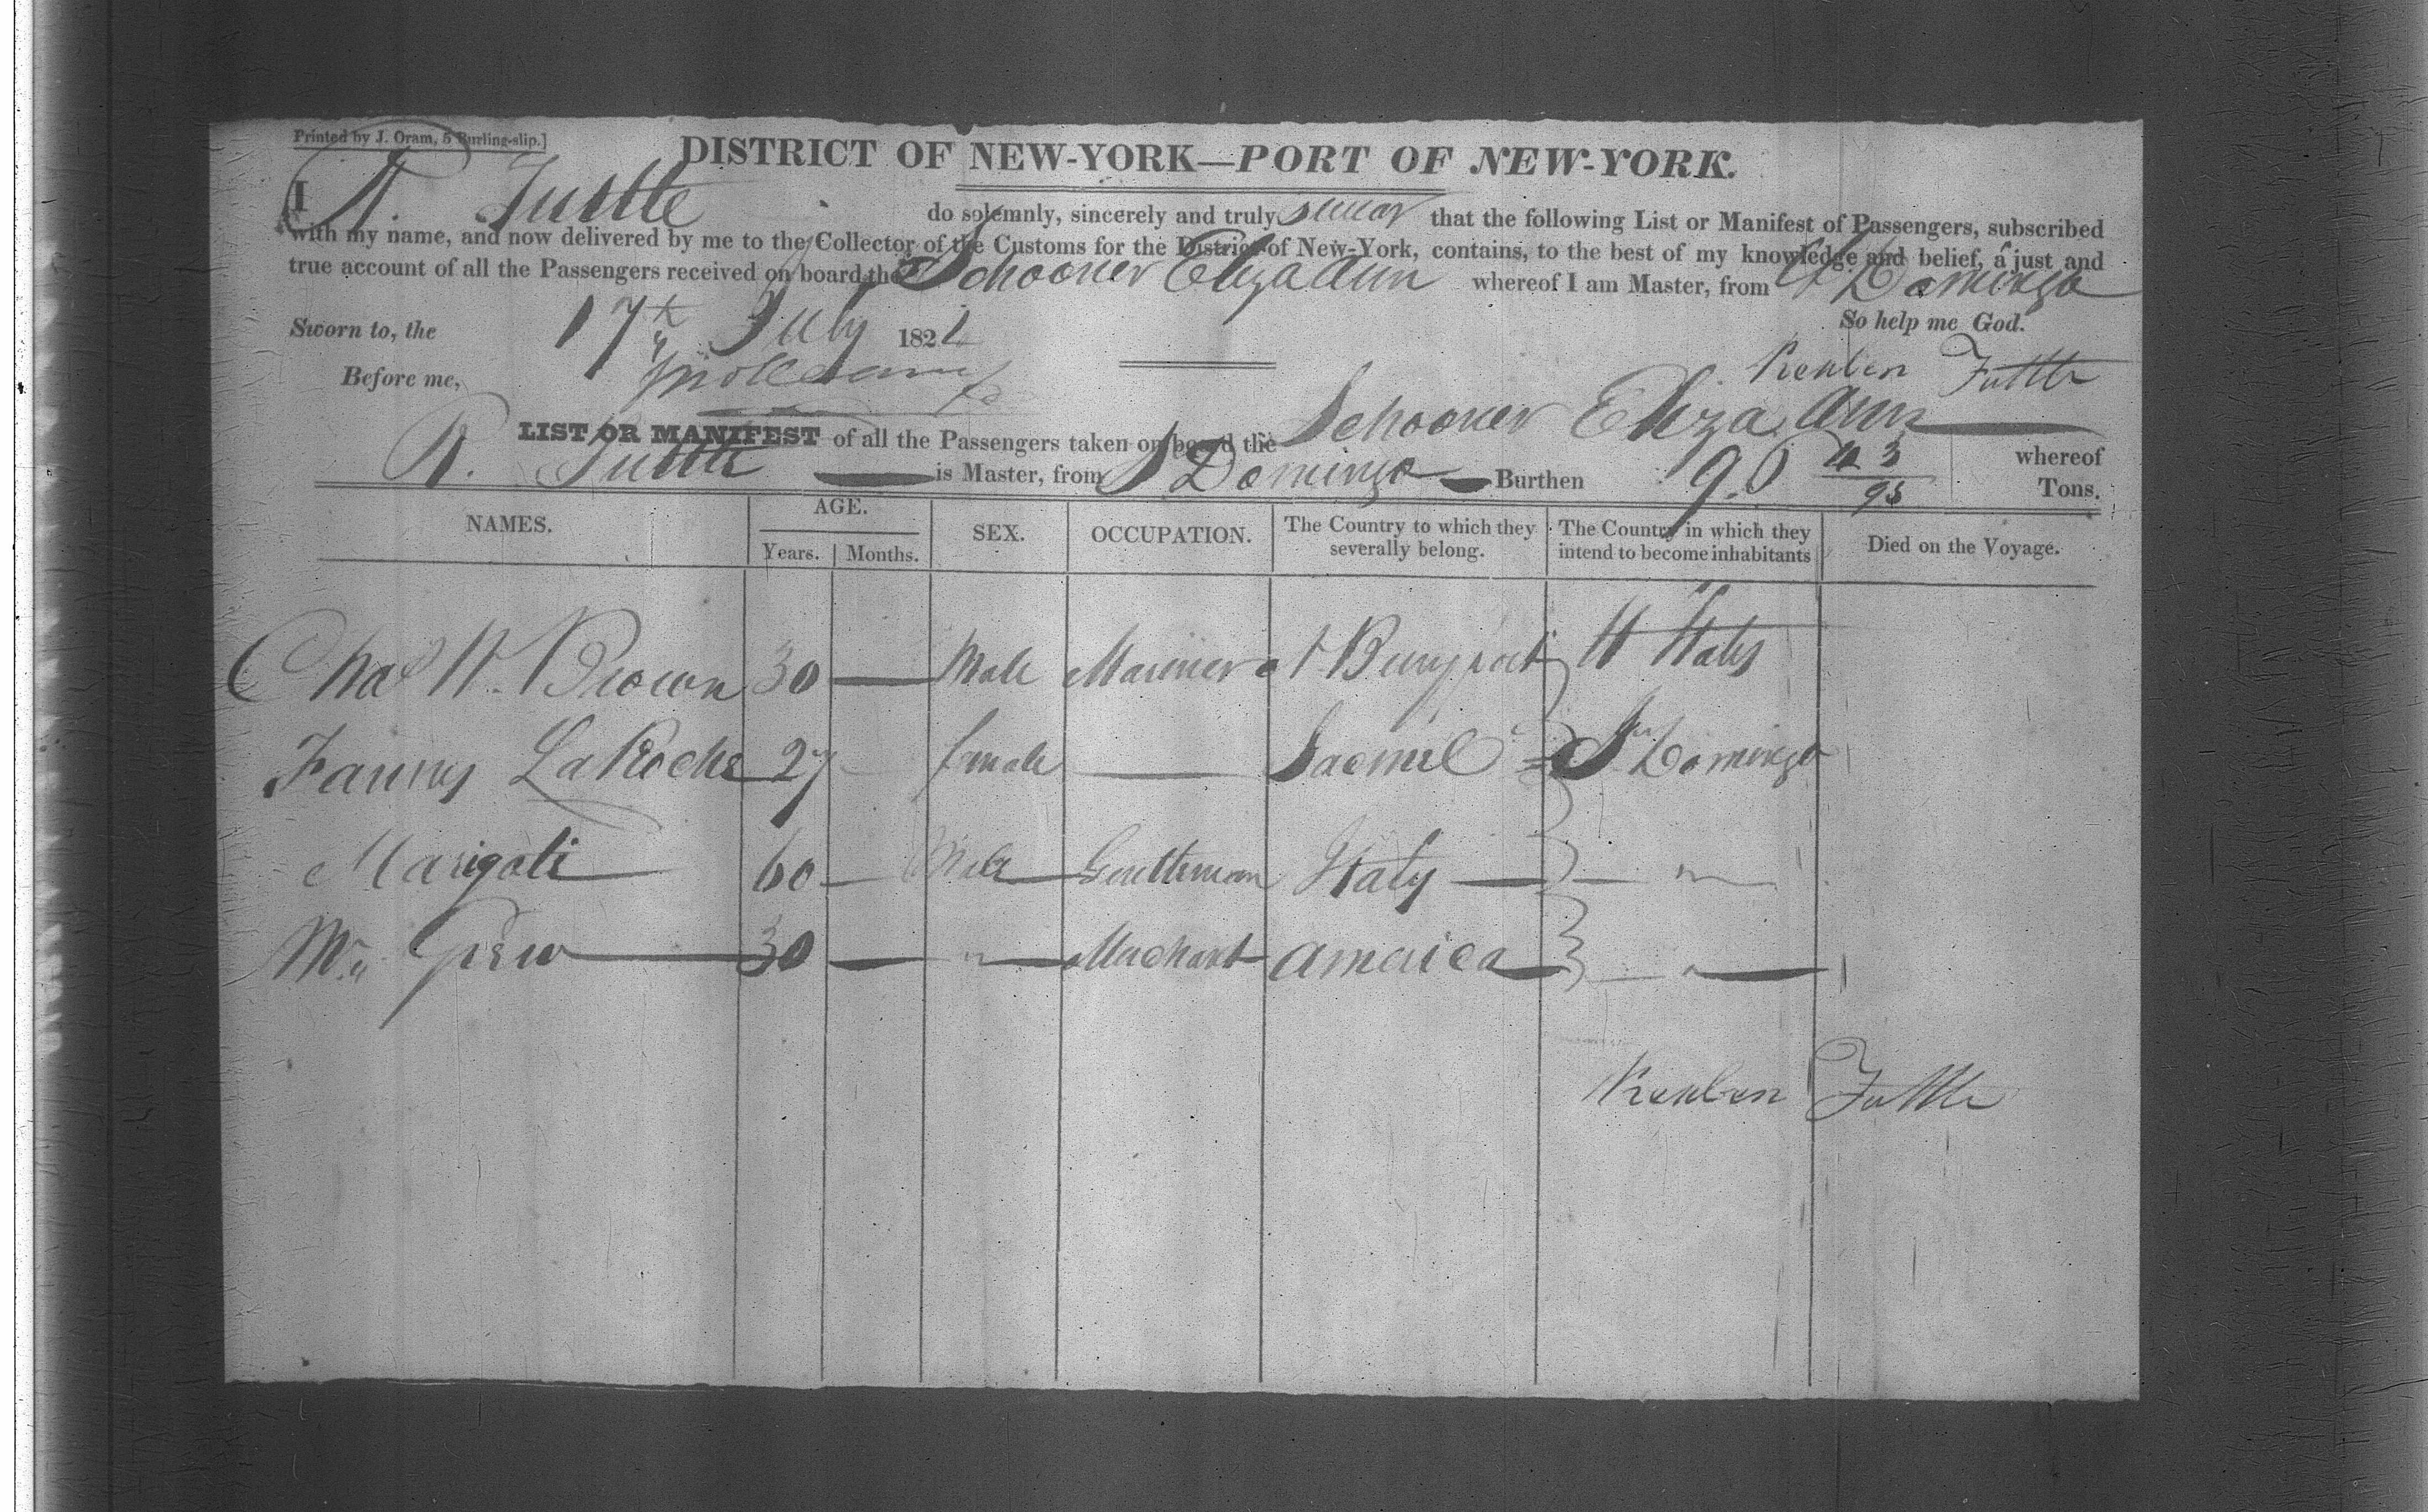 Printed by J. Oram, 5 Burling-slip.]
DISTRICT OF NEW-YORK—PORT OF NEW-YORK.
I R. Tuttle do solemnly, sincerely and truly swear that the following List or Manifest of Passengers, subscribed
with my name, and now delivered by me to the Collector of the Customs for the District of New-York, contains, to the best of my knowledge and belief, a just and
true account of all the Passengers received on board the Schooner Eliza Ann whereof I am Master, from St Domingo
Sworn to, the 17th July 1821 So help me God.
Before me, Reuben Tuttle
LIST OR MANIFEST of all the Passengers taken on board the Schooner Eliza Ann whereof
R. Tuttle is Master, from St Domingo Burthen 90 43/95 Tons.
NAMES. AGE. Years. Months. SEX. OCCUPATION. The Country to which they severally belong. The Country in which they intend to become inhabitants Died on the Voyage.
Chas W. Brown 30 — Male Mariner N Buryport U States
Fanny LaRoche 27 female — Jacmel St Domingo
Marigoti 60 — Male Gentleman Italy — "
Mr. Grew 30 — " Merchant America — "
Reuben Tuttle